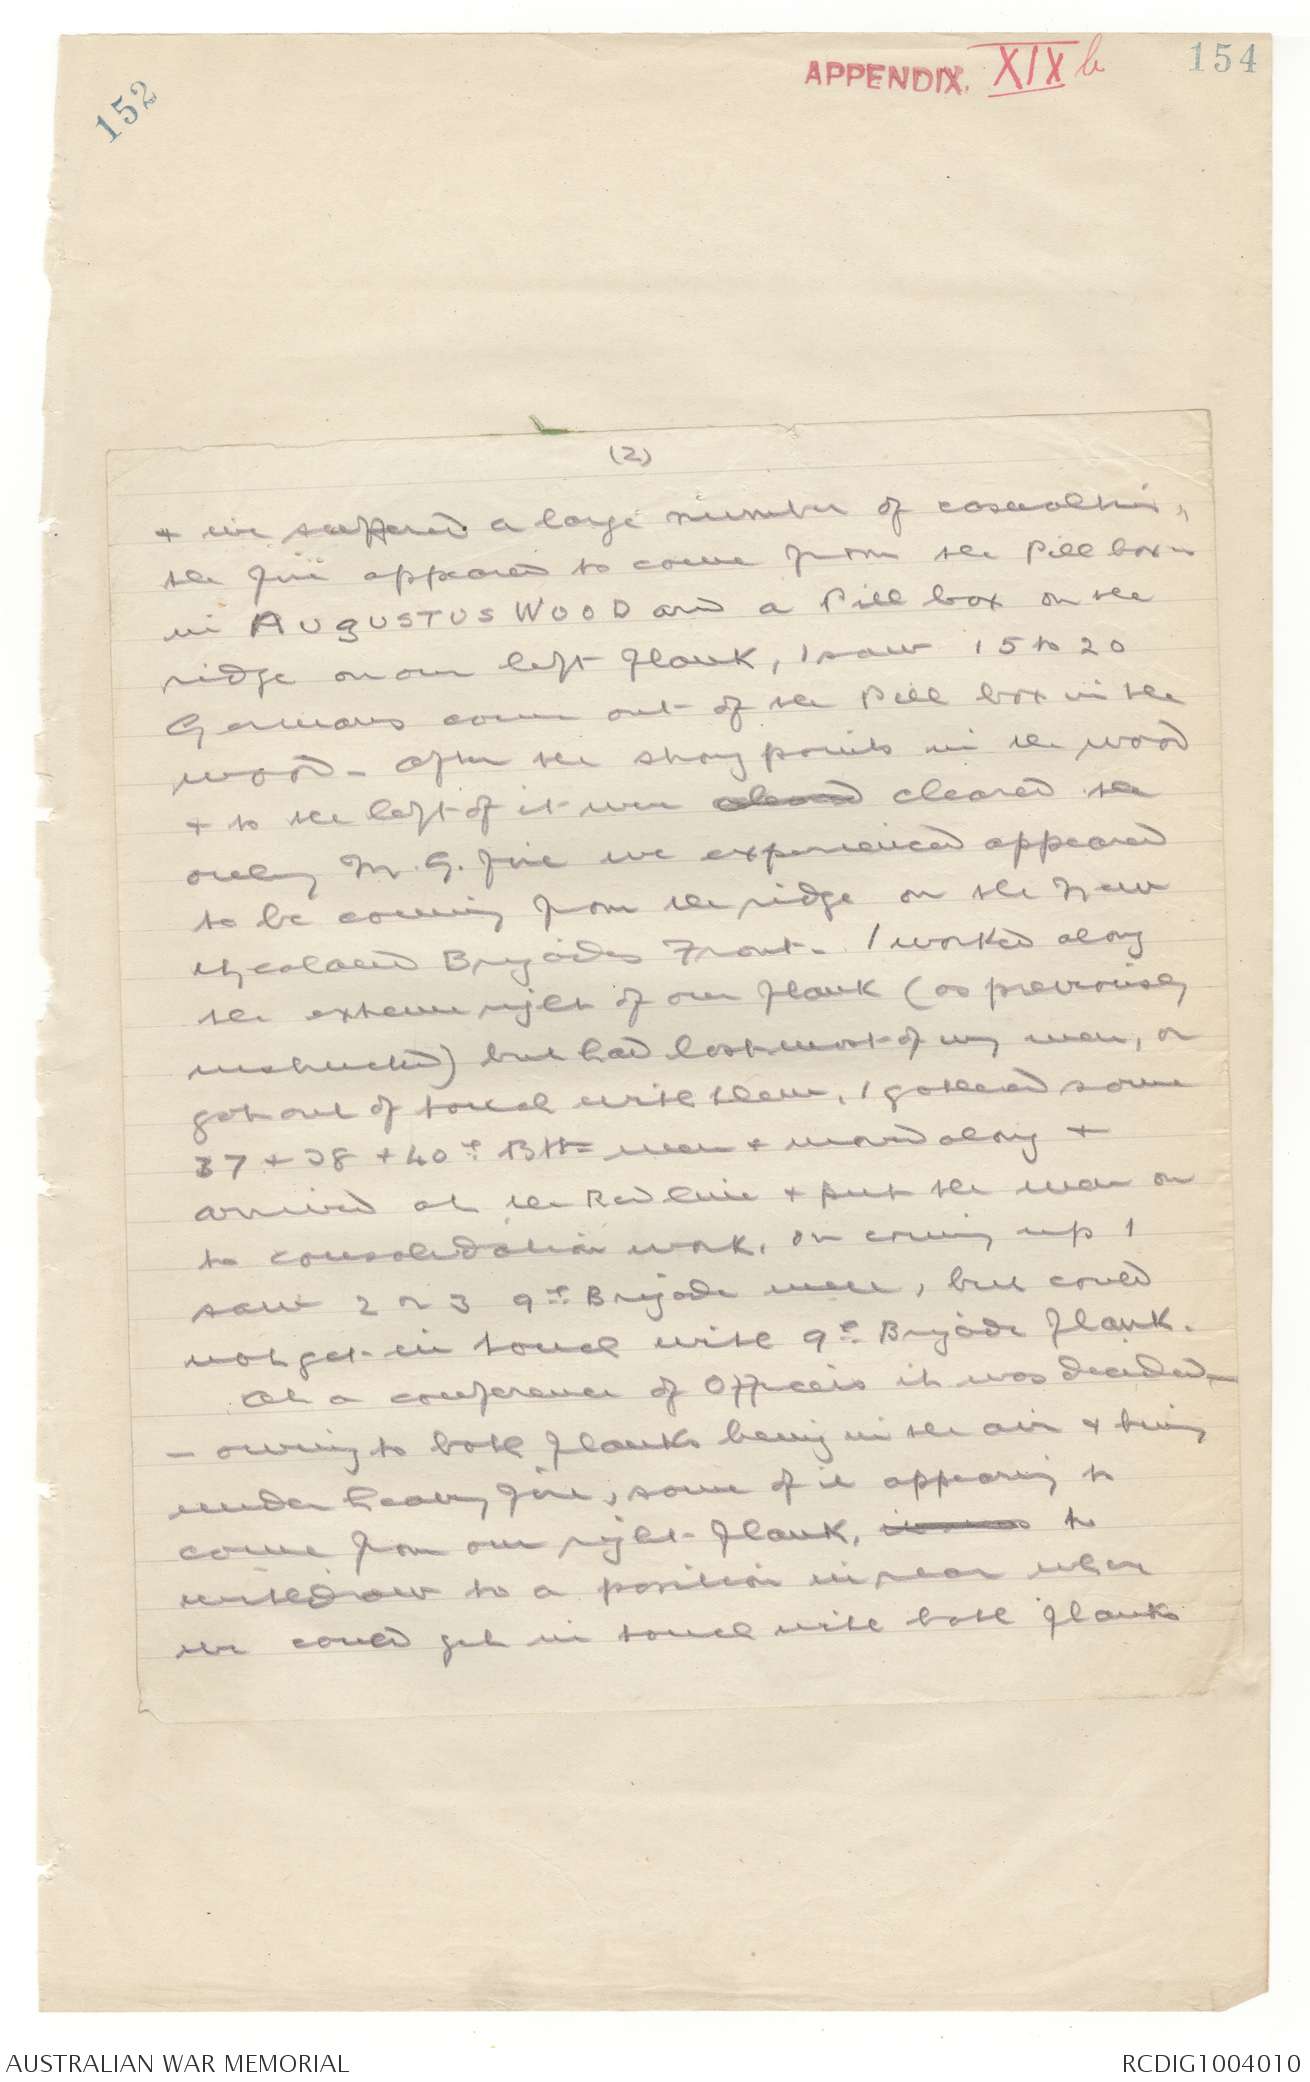 152
APPENDIX. XIX b
154
(2)
& we suffered a large number of casualties,
the fire appeared to come from the Pill boxes
in AUGUSTUS WOOD and a Pill box on the
ridge on our left flank, I saw 15 to 20
Germans come out of the Pill box in the
wood - After the strong points in the wood
& to the left of it were cleared cleared the
only M.G. fire we experienced appeared
to be coming from the ridge on the New
Zealand Brigades Front. I worked along
the extreme right of our flank (as previously
instructed) but had lost most of my men, or
got out of touch with them, I gathered some
37 & 38 & 40th Bttn men & moved along &
arrived at the Red line & put the men on
to consolidation work, on coming up I
saw 2 or 3 9th Brigade men, but could
not get in touch with 9th Brigade flank.
At a conference of Officers it was decided -
- owing to both flanks being in the air & being
under heavy fire, some of it appearing to
come from our right flank, it was to
withdraw to a position in rear where
we could get in touch with both flanks
AUSTRALIAN WAR MEMORIAL
RCDIG1004010